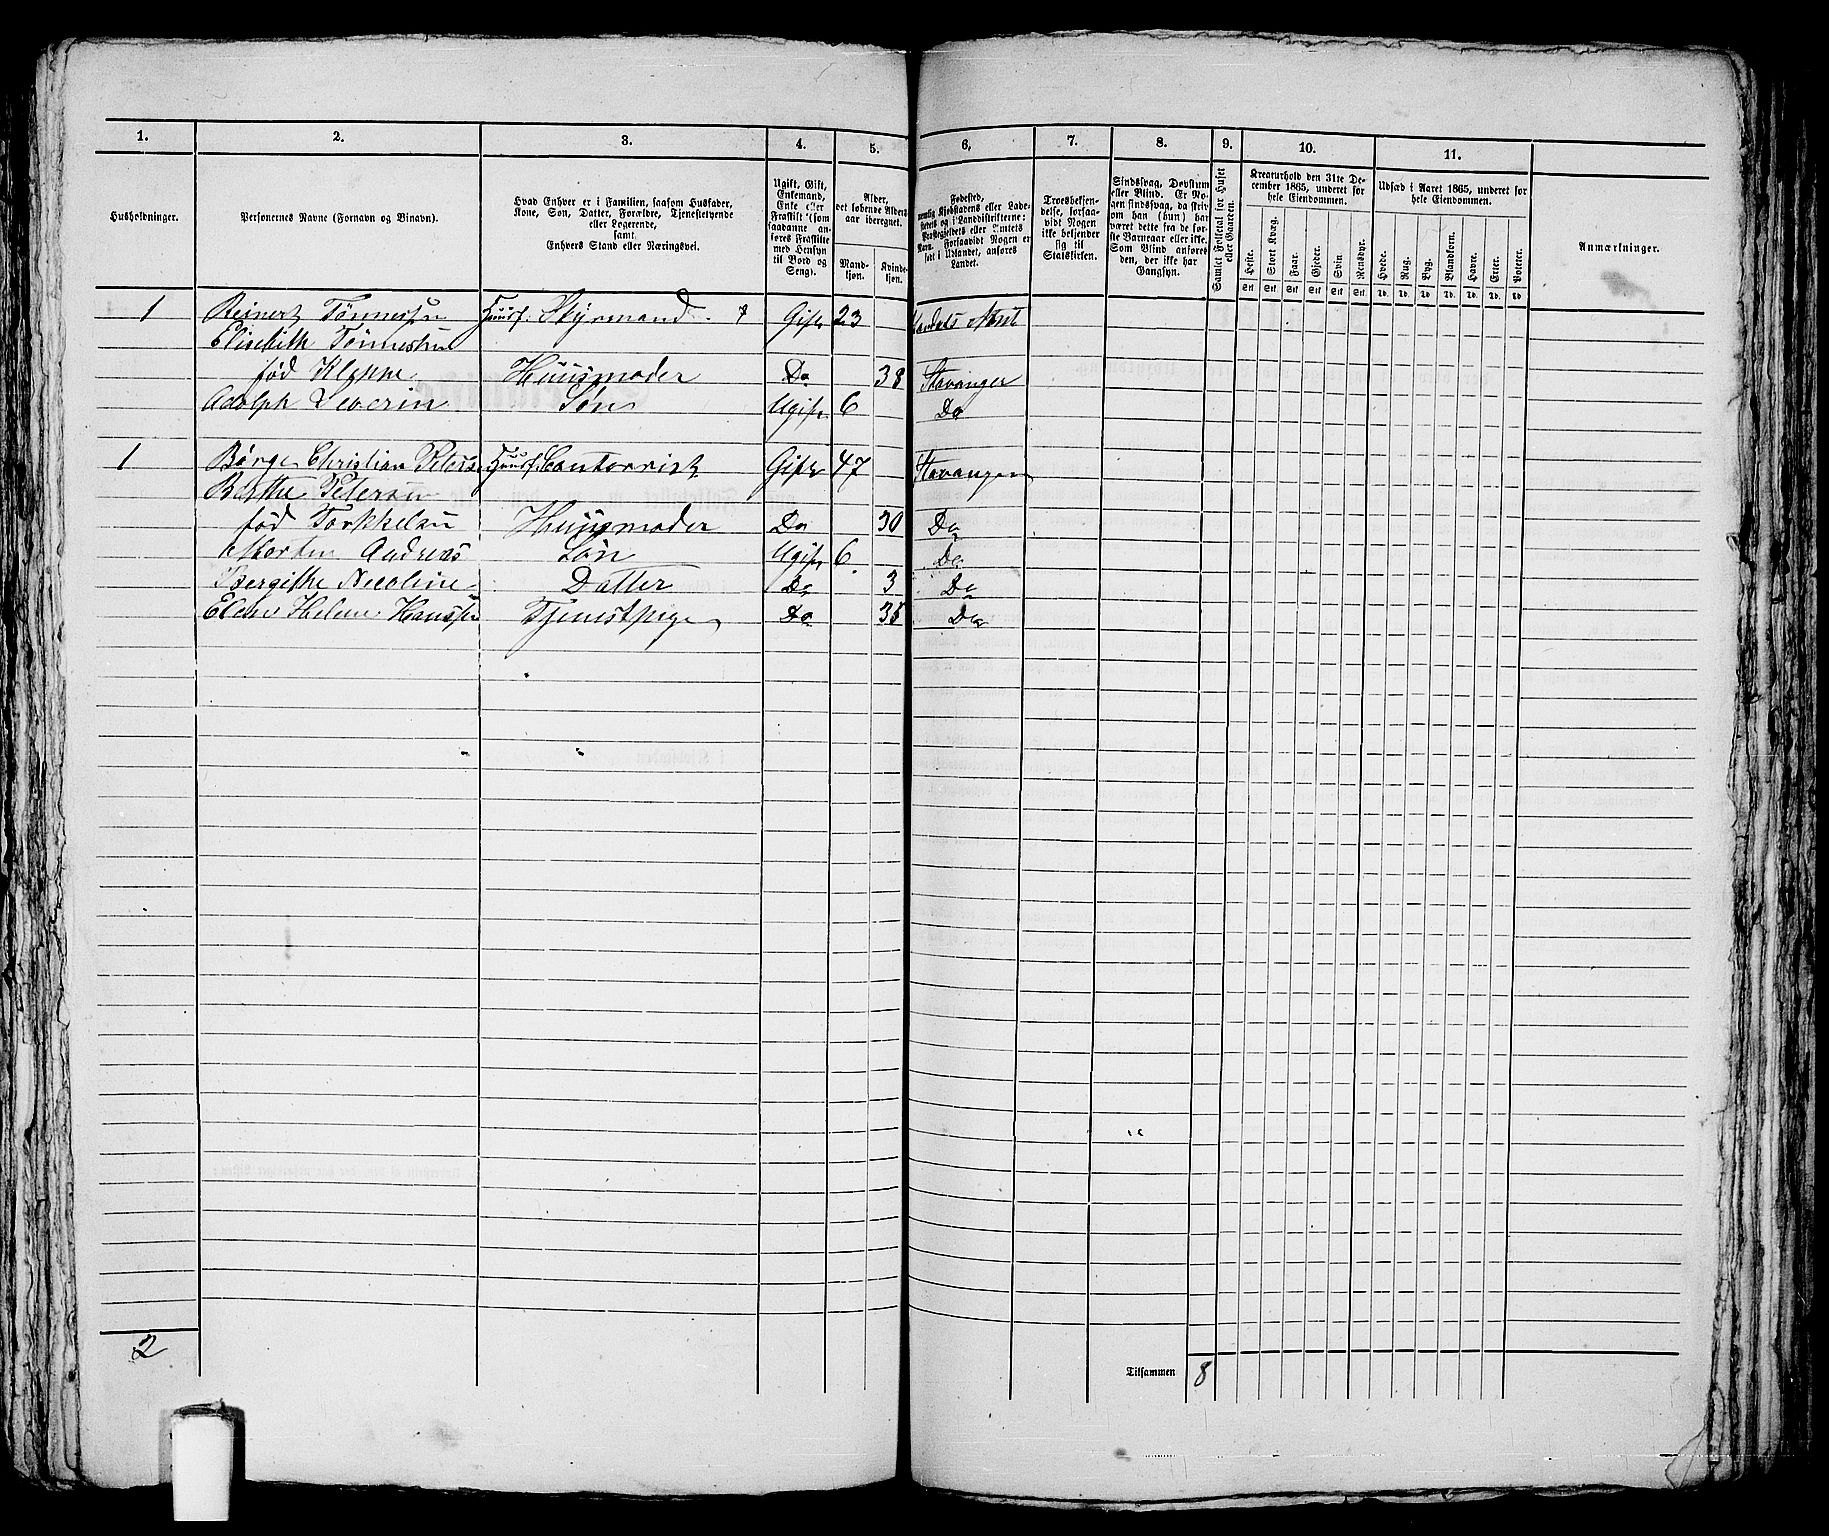 1. 2. 3. 4. 5. 6. 7. 8. 9. 10. 11.
Husholdninger.
Personernes Navne (Fornavn og Binavn).
Hvad Enhver er i Familien, saasom Husfader,
Kone, Søn, Datter, Forældre, Tjenestetyende
eller Logerende,
samt
Enhvers Stand eller Næringsvei.
Ugift, Gift,
Enkemand,
Enke eller
Fraskilt (som
saadanne an-
føres Fraskilte
med Hensyn
til Bord og
Seng).
Alder,
det løbende Alders-
aar iberegnet.
Mand-
kjøn.
Kvinde-
kjøn.
Fødested,
nemlig Kjøbstadens eller Lade-
stedets og i Landdistrikterne:
Præstegjeldets eller Amtets
Navn. Forsaavidt Nogen er
født i Udlandet, anføres
Landet.
Troesbekjen-
delse, forsaa-
vidt Nogen
ikke bekjender
sig til
Statskirken.
Sindssvag, Døvstum
eller Blind. Er No-
gen sindssvag, da skriv
om han (hun) har
været dette fra de før-
ste Barneaar eller ikke.
Som Blind anføres
den, der ikke har
Gangsyn.
Samlet Folketal for Huset
eller Gaarden.
Kreaturhold den 31te De-
cember 1865, underet for
hele Eiendommen.
Heste. Stort Kvæg. Faar. Gjeder. Svin. Rensdyr.
Stk. Stk. Stk. Stk. Stk. Stk.
Udsæd i Aaret 1865, underet for
hele Eiendommen.
Hvede. Rug. Byg. Blandkorn. Havre. Erter. Poteter.
Td. Td. Td. Td. Td. Td. Td.
Anmærkninger.
1 Reinert Tønnessen Huusf. Styrmand Gift 23
Elisebith Tønnessen
fød Kleppe Huusmoder Do 38 Stavanger
Adolph Severin Søn Ugift 6 Do
1 Børge Christian Peterse Huusf. Contorrist Gift 47 Stavanger
Birthe Petersen
fød Torkkelsen Huusmoder Do 30 Do
Morten Andreas Søn Ugift 6 Do
Bergithe Nicoline Datter Do 3 Do
Elene Helene Hanssen Tjenestpige Do Do
2
Tilsammen 8